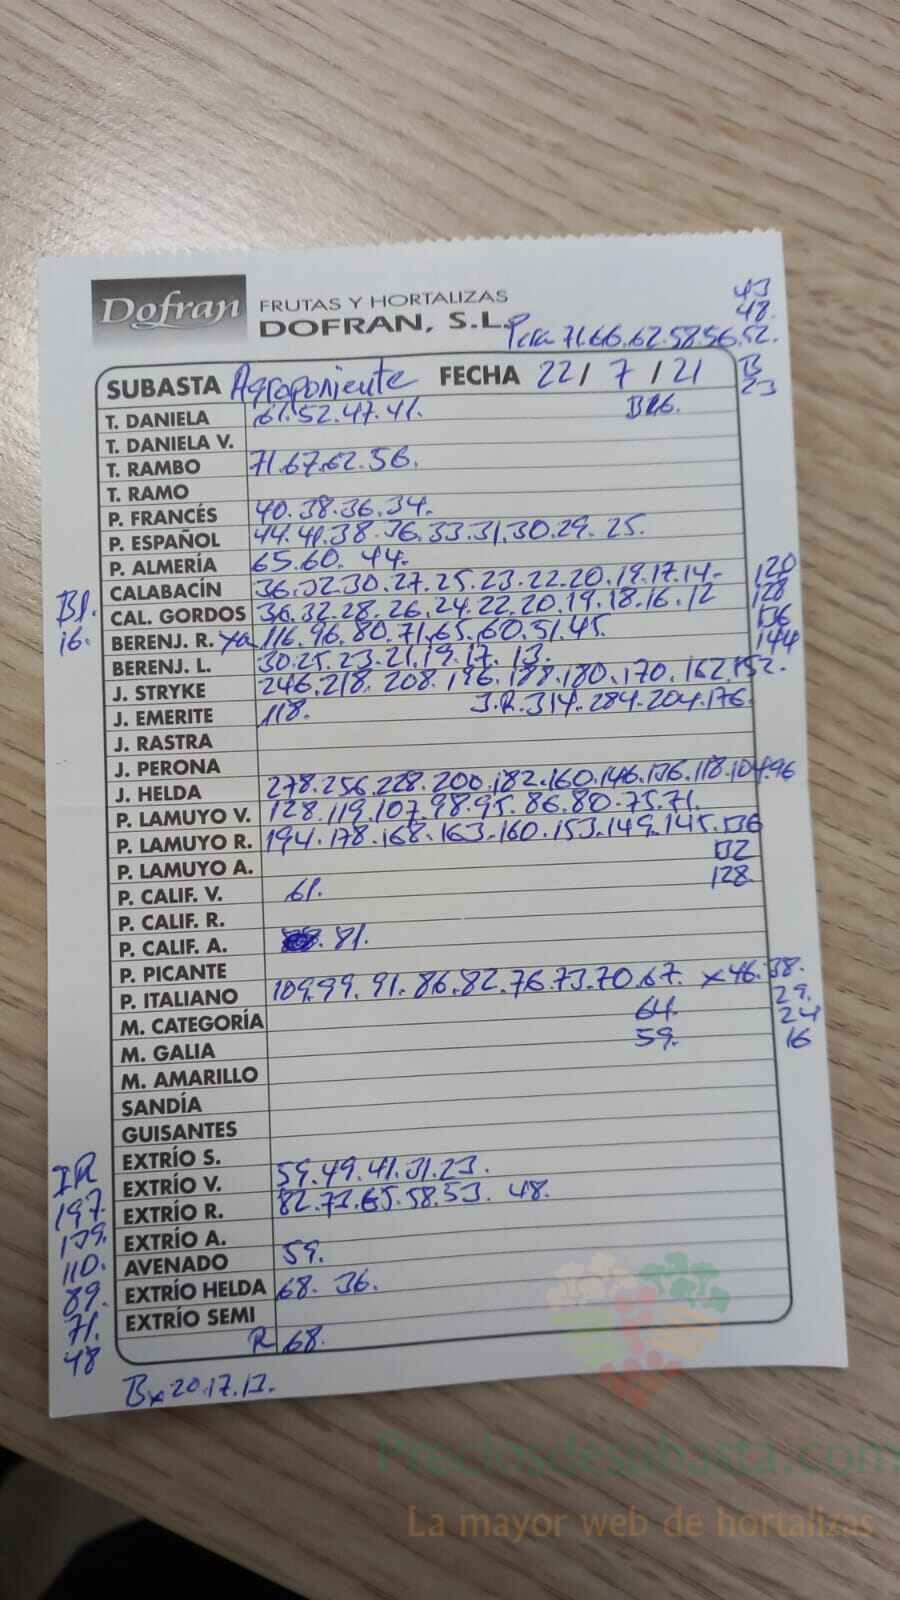 Dofran FRUTAS Y HORTALIZAS
DOFRAN, S.L.
43
48.
Pera 71.66.62.58.56.52.
SUBASTA Agroponiente FECHA 22 / 7 / 21
B
23
T. DANIELA 61.52.47.41. B26.
T. DANIELA V.
T. RAMBO 71.67.62.56.
T. RAMO
P. FRANCÉS 40.38.36.34.
P. ESPAÑOL 44.41.38.36.33.31.30.29.25.
P. ALMERÍA 65.60.44.
CALABACÍN 36.32.30.27.25.23.22.20.19.17.14.
CAL. GORDOS 36.32.28.26.24.22.20.19.18.16.12
BERENJ. R. 116.96.80.71.65.60.51.45.
BERENJ. L. 30.25.23.21.19.17.13.
J. STRYKE 246.218.208.196.188.180.170.162.152.
J. EMERITE 118. J.R.314.284.204.176.
J. RASTRA
J. PERONA
J. HELDA 278.256.228.200.182.160.146.136.118.104.96
P. LAMUYO V. 128.119.107.98.95.86.80.75.71.
P. LAMUYO R. 194.178.168.163.160.153.149.145.136
P. LAMUYO A. 132
P. CALIF. V. 61. 128.
P. CALIF. R.
P. CALIF. A. 81.
P. PICANTE
P. ITALIANO 109.99.91.86.82.76.73.70.67. x46.38.
M. CATEGORÍA 64. 29.
M. GALIA 59. 24
16
M. AMARILLO
SANDÍA
GUISANTES
EXTRÍO S.
EXTRÍO V. 59.49.41.31.23.
EXTRÍO R. 82.73.65.58.53.48.
EXTRÍO A.
AVENADO 59.
EXTRÍO HELDA 68.36.
EXTRÍO SEMI
R 68.
Bx 20.17.13.
16.
120
128
136
144
IR
197.
139.
110.
89.
71.
48
Preciosdesubasta.com
La mayor web de hortalizas